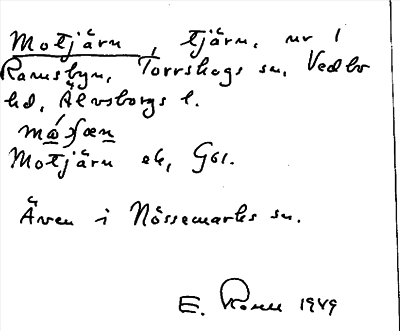 Motjärn, tjärn, nr 1
Ramsbyn, Torrskogs sn, Vedbo
hd, Älvsborgs l.
Motjärn ek, G61.
Även i Nössemarks sn.
E. 1949